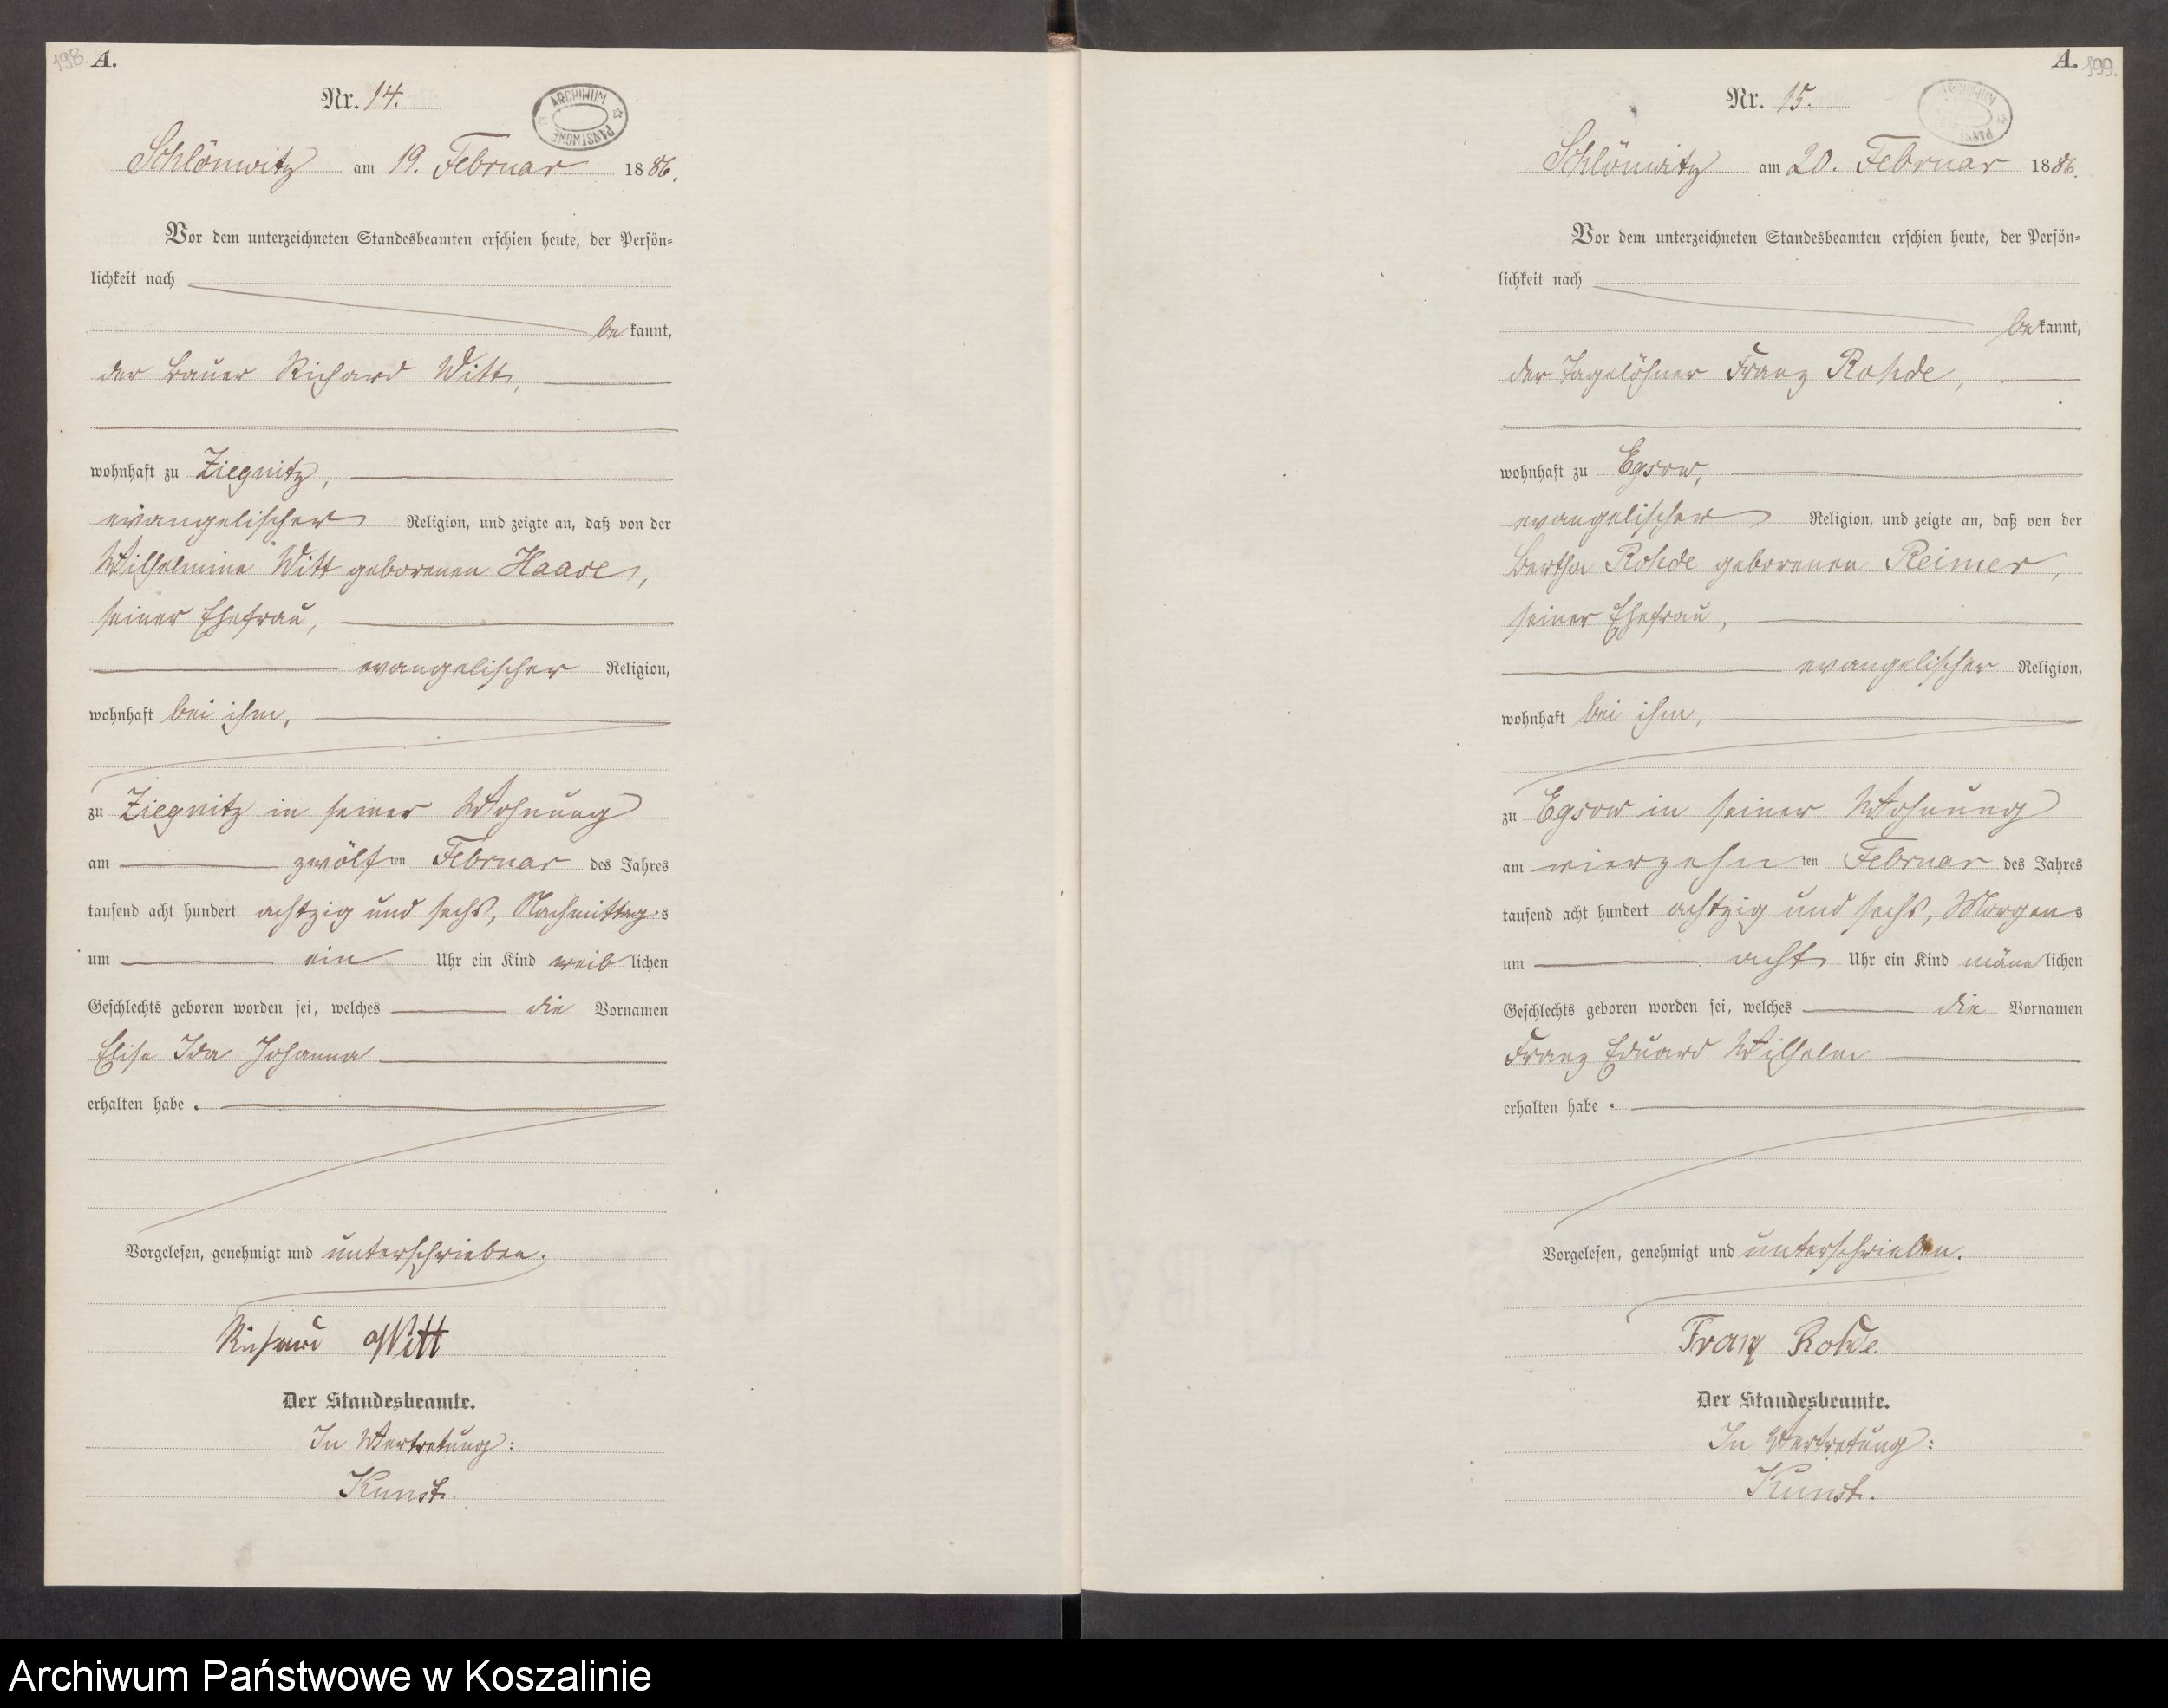 198. A.
Nr. 14.
ARCHIWUM PAŃSTWOWE
Schlönwitz am 19. Februar 1886.
Vor dem unterzeichneten Standesbeamten erschien heute, der Persön-
lichkeit nach
bekannt,
der Bauer Richard Witt,
wohnhaft zu Ziegnitz,
evangelischer Religion, und zeigte an, daß von der
Wilhelmine Witt geborenen Haase,
seiner Ehefrau,
evangelischer Religion,
wohnhaft bei ihm,
zu Ziegnitz in seiner Wohnung
am zwölften Februar des Jahres
tausend acht hundert achtzig und sechs, Nachmittags
um ein Uhr ein Kind weiblichen
Geschlechts geboren worden sei, welches die Vornamen
Elise Ida Johanna
erhalten habe.
Vorgelesen, genehmigt und unterschrieben.
Richard Witt
Der Standesbeamte.
In Vertretung:
Kunst.
A. 199.
Nr. 15.
ARCHIWUM PAŃSTWOWE
Schlönwitz am 20. Februar 1886.
Vor dem unterzeichneten Standesbeamten erschien heute, der Persön-
lichkeit nach
bekannt,
der Tagelöhner Franz Rohde,
wohnhaft zu Egsow,
evangelischer Religion, und zeigte an, daß von der
Bertha Rohde geborenen Reimer,
seiner Ehefrau,
evangelischer Religion,
wohnhaft bei ihm,
zu Egsow in seiner Wohnung
am vierzehnten Februar des Jahres
tausend acht hundert achtzig und sechs, Morgens
um acht Uhr ein Kind männlichen
Geschlechts geboren worden sei, welches die Vornamen
Franz Eduard Wilhelm
erhalten habe.
Vorgelesen, genehmigt und unterschrieben.
Franz Rohde
Der Standesbeamte.
In Vertretung:
Kunst.
Archiwum Państwowe w Koszalinie